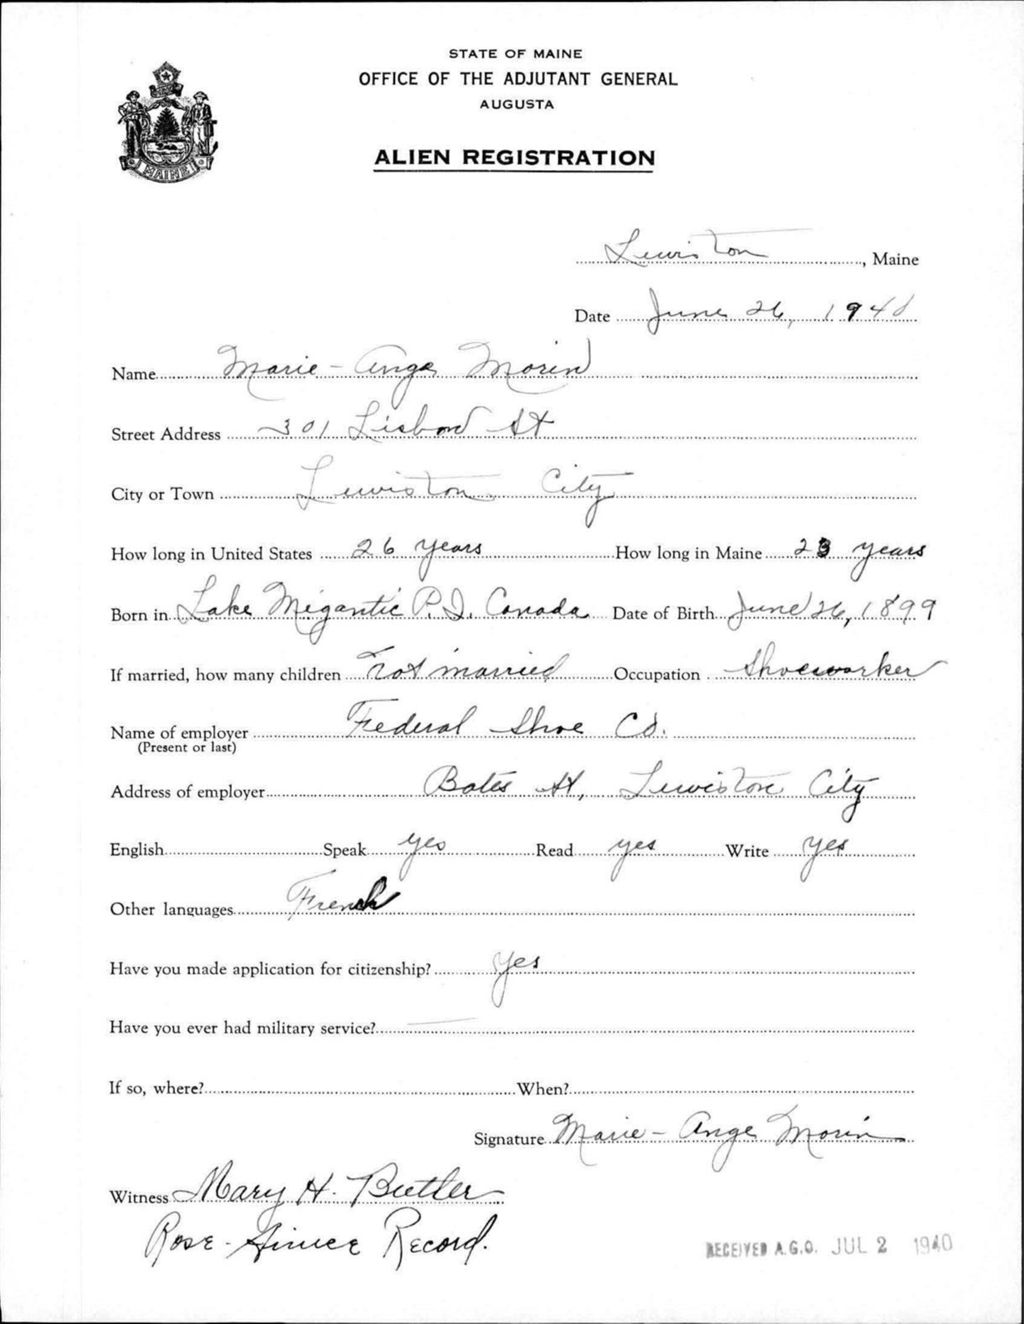 STATE OF MAINE
OFFICE OF THE ADJUTANT GENERAL
AUGUSTA
ALIEN REGISTRATION
MAINE
Lewiston, Maine
Date June 26, 1940
Name Marie-Ange Morin
Street Address 301 Lisbon St
City or Town Lewiston City
How long in United States 26 years How long in Maine 23 years
Born in Lake Megantic P.Q. Canada Date of Birth June 26, 1899
If married, how many children not married Occupation Shoeworker
Name of employer Federal Shoe Co.
(Present or last)
Address of employer Bates St, Lewiston City
English Speak yes Read yes Write yes
Other languages French
Have you made application for citizenship? Yes
Have you ever had military service? —
If so, where? When?
Signature Marie-Ange Morin
Witness Mary H. Butler
Rose- Record.
RECEIVED A.G.O. JUL 2 1940